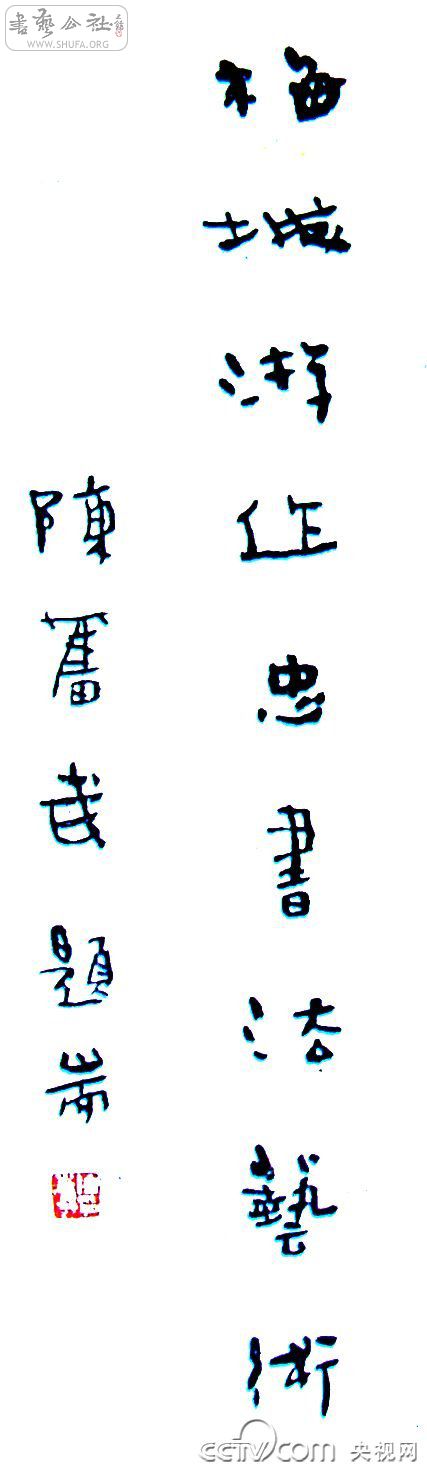 書藝公社
WWW.SHUFA.ORG
梅城游作忠書法藝術
陳奮武題耑
CCTV.com 央视网